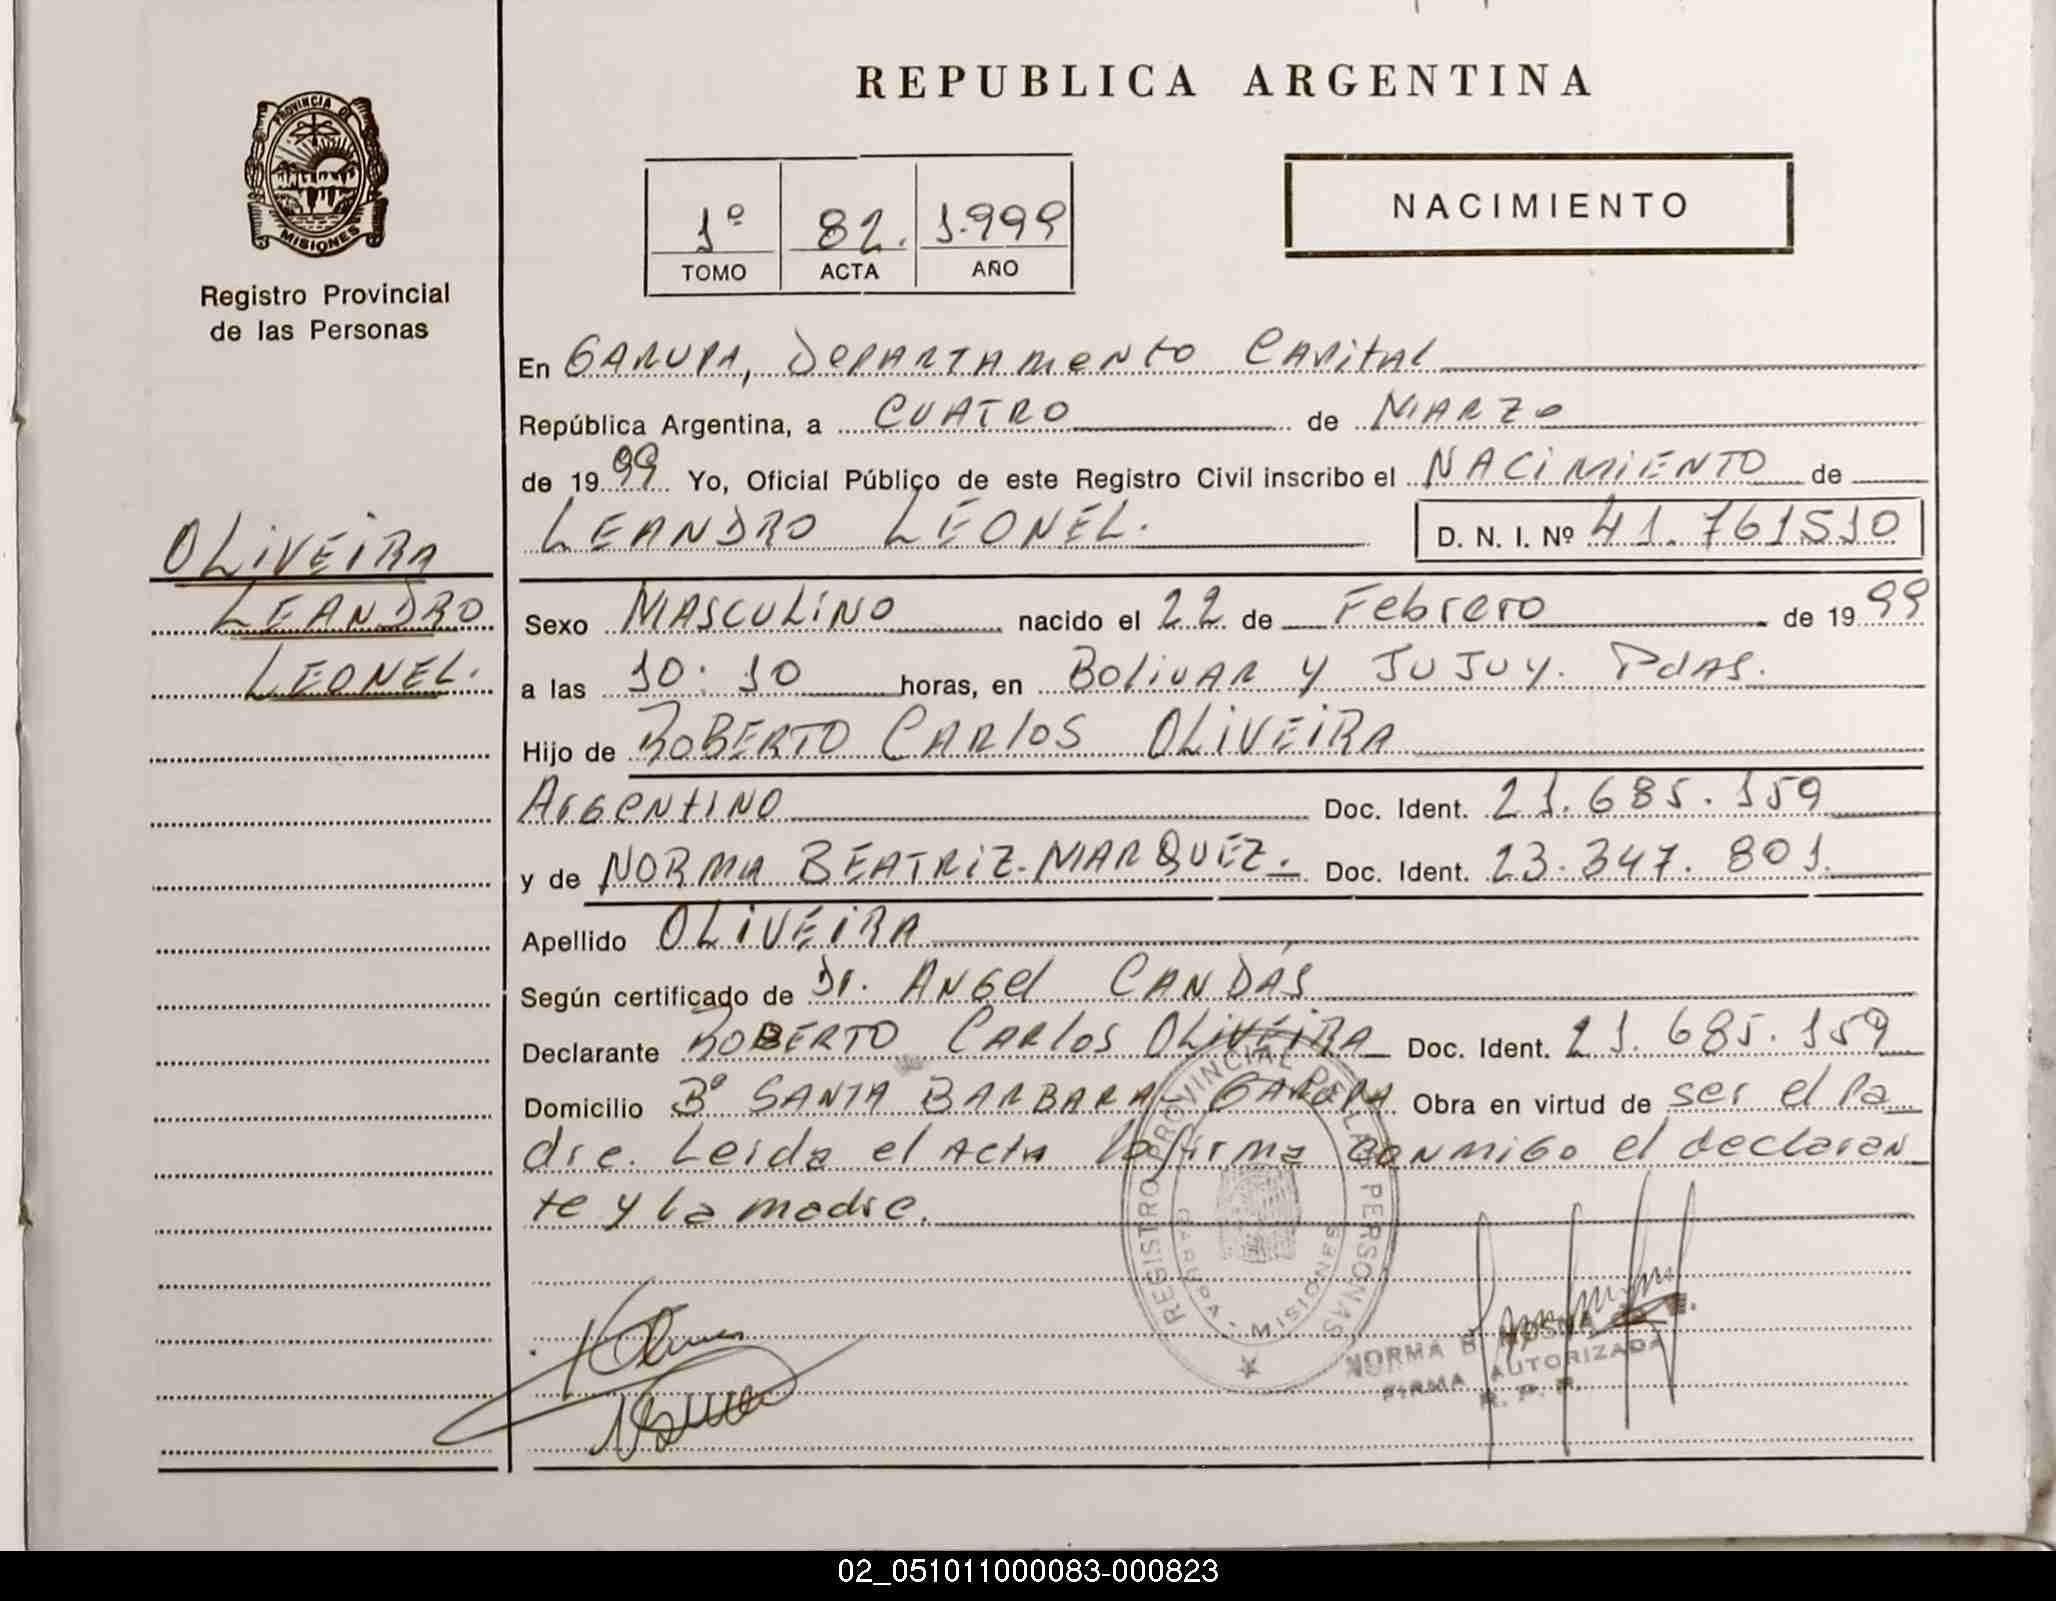 REPUBLICA ARGENTINA
PROVINCIA DE
MISIONES
Registro Provincial
de las Personas
1º 82. 1.999
TOMO ACTA AÑO
NACIMIENTO
En GARUPA, DEPARTAMENTO CAPITAL
República Argentina, a CUATRO de MARZO
de 1999 Yo, Oficial Público de este Registro Civil inscribo el NACIMIENTO de
LEANDRO LEONEL. D. N. I. Nº 41.761510
OLIVEIRA
LEANDRO
LEONEL.
Sexo MASCULINO nacido el 22 de Febrero de 1999
a las 10:10 horas, en Bolivar y JUJUY. Pdas.
Hijo de ROBERTO CARLOS OLIVEIRA
ARGENTINO Doc. Ident. 21.685.159
y de NORMA BEATRIZ-MARQUEZ. Doc. Ident. 23.347.801.
Apellido OLIVEIRA
Según certificado de Dr. Angel CANDAS
Declarante ROBERTO CARLOS OLIVEIRA Doc. Ident. 21.685.159
Domicilio Bº SANTA BARBARA-GARUPA Obra en virtud de ser el Pa
dre. Leida el Acta la firma conmigo el declaran
te y la madre.
REGISTRO PROVINCIAL DE LAS PERSONAS
GARUPA - MISIONES
NORMA B.
FIRMA AUTORIZADA
R. P. P.
02_051011000083-000823